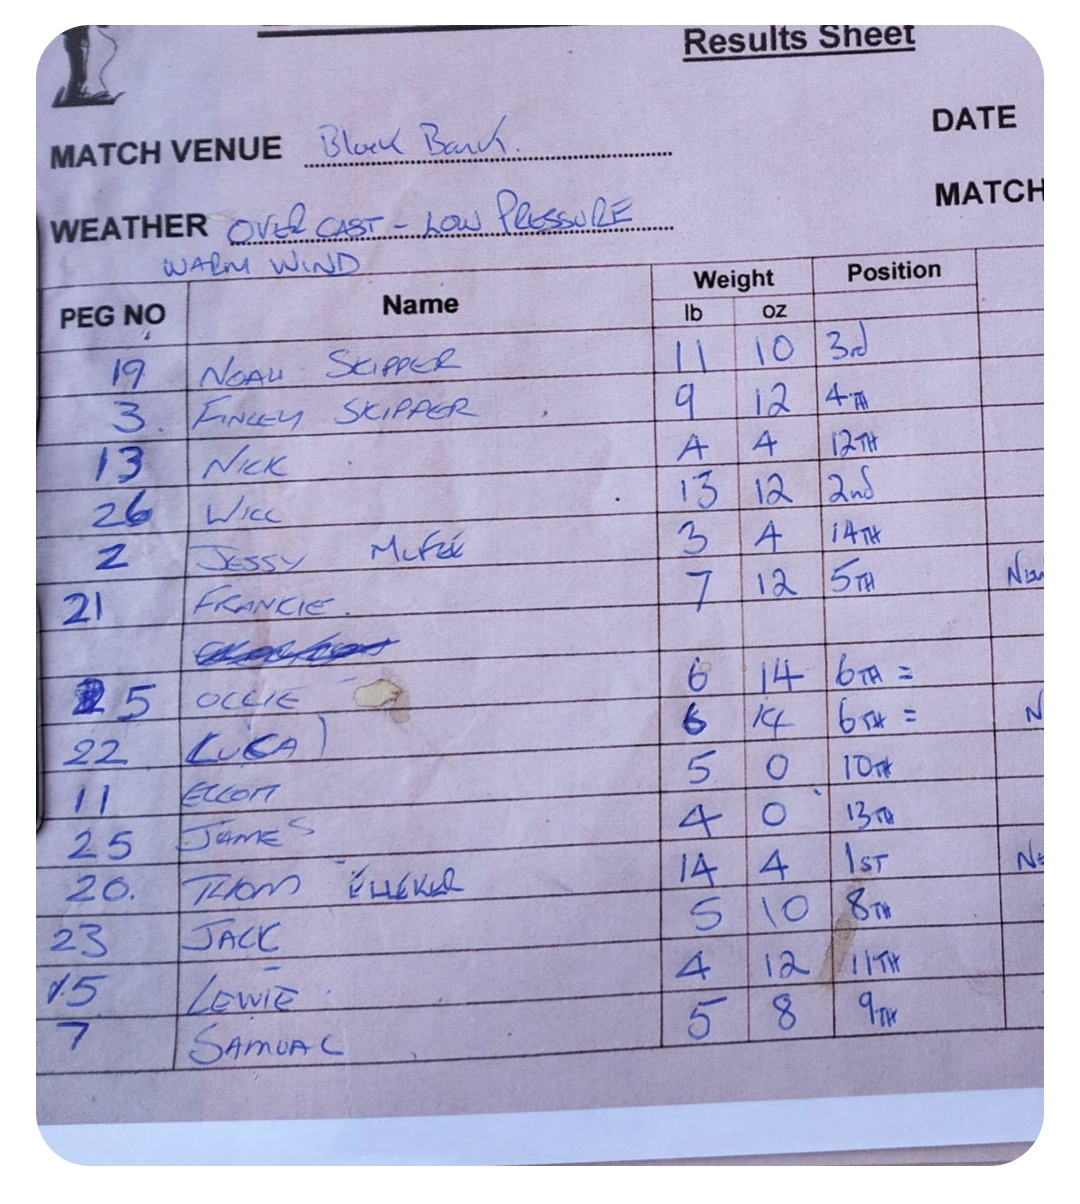 Results Sheet
MATCH VENUE Black Bank.
DATE
WEATHER OVER CAST - LOW PRESSURE
MATCH
WARM WIND
PEG NO Name Weight Position
lb oz
19 NOAH SKIPPER 11 10 3rd
3. FINLEY SKIPPER 9 12 4TH
13 NICK 4 4 12TH
26 WILL 13 12 2nd
2 JESSY McFEE 3 4 14TH
21 FRANKIE. 7 12 5TH
5 OLLIE 6 14 6TH =
22 LUCA 6 14 6TH =
11 ELLOTT 5 0 10TH
25 JAMES 4 0 13TH
20. THOM 14 4 1ST
23 JACK 5 10 8TH
15 LEWIE 4 12 11TH
7 SAMUAL 5 8 9TH